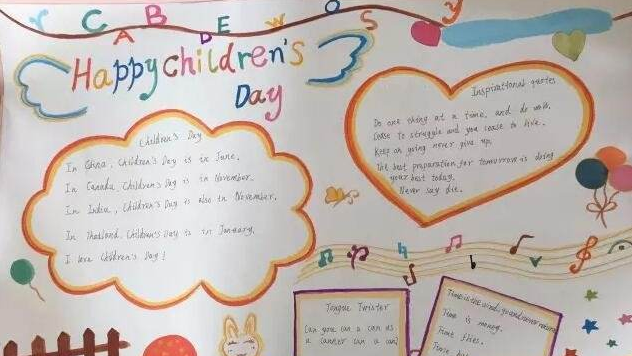 Y C A B D E W O S Y
Happy children's
Day
Children's Day
In China, Children's Day is in June.
In Canada, Children's Day is in November.
In India, Children's Day is also in November.
In Thailand, Children's Day is in January.
I love Children's Day!
Inspirational quotes
Do one thing at a time, and do well.
Cease to struggle and you cease to live.
Keep on going never give up.
The best preparation for tomorrow is doing
your best today.
Never say die.
Tongue Twister
Can you can a can as
a canner can a can
Time is money.
Time flies.
Time